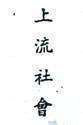 上流社會